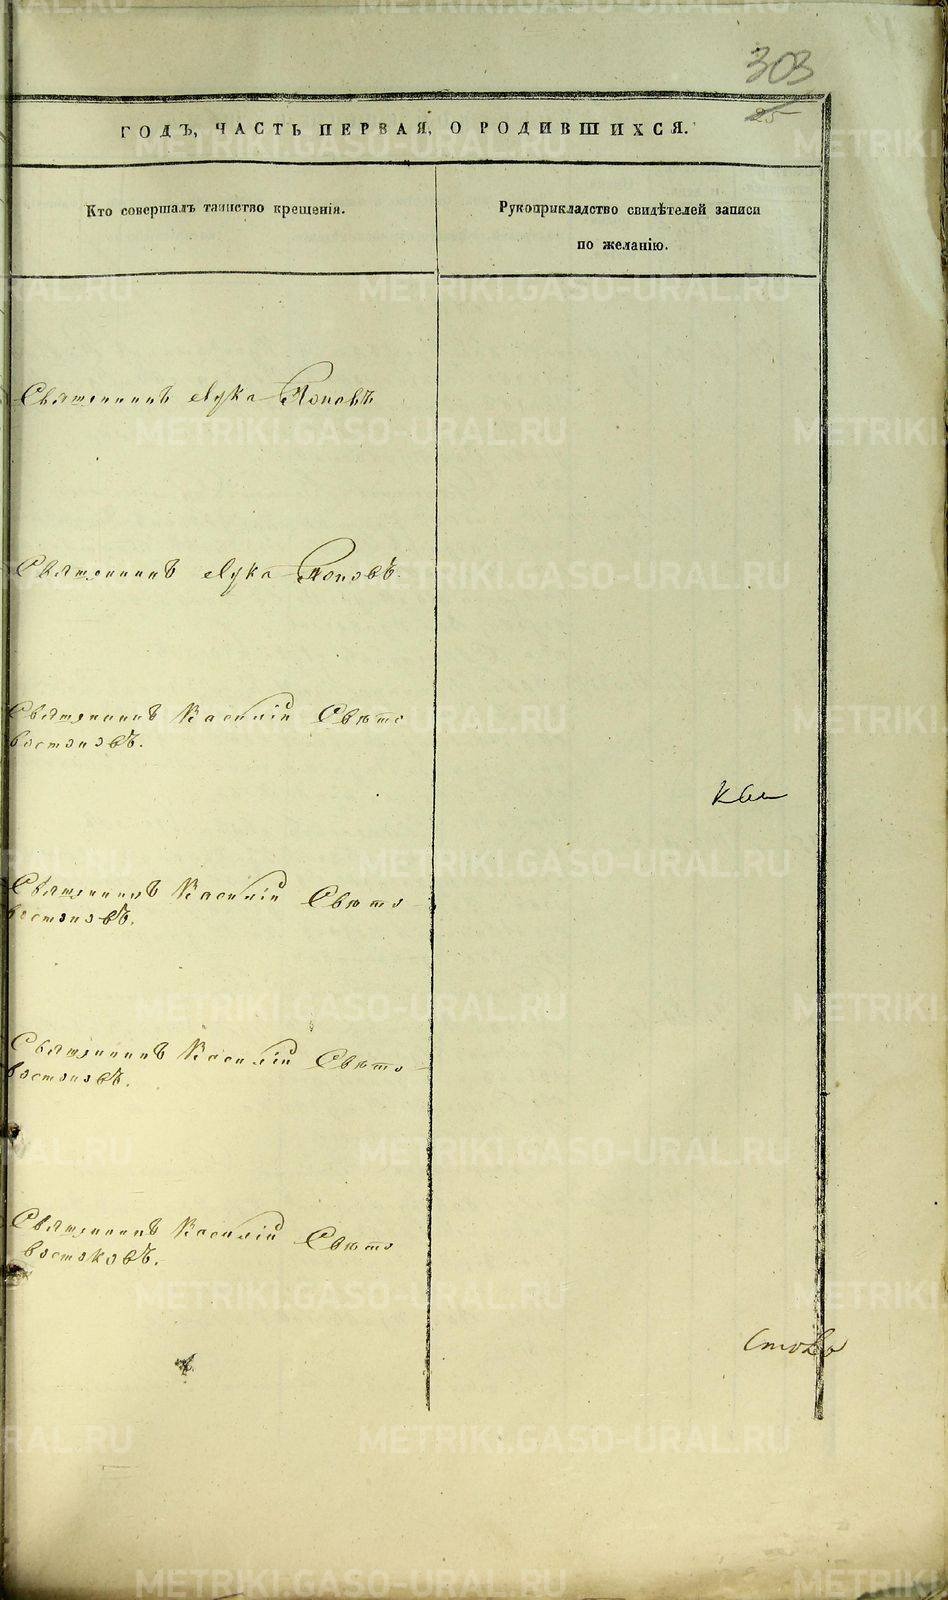 303
25
ГОДЪ, ЧАСТЬ ПЕРВАЯ, О РОДИВШИХСЯ.
Кто совершалъ таинство крещенія.
Рукоприкладство свидѣтелей записи
по желанію.
Священникъ Лука Поповъ
Священникъ Лука Поповъ.
Священникъ Василій Свѣто
востоковъ.
Священникъ Василій Свѣто
востоковъ.
Священникъ Василій Свѣто
востоковъ.
Священникъ Василій Свѣто
востоковъ.
METRIKI.GASO-URAL.RU